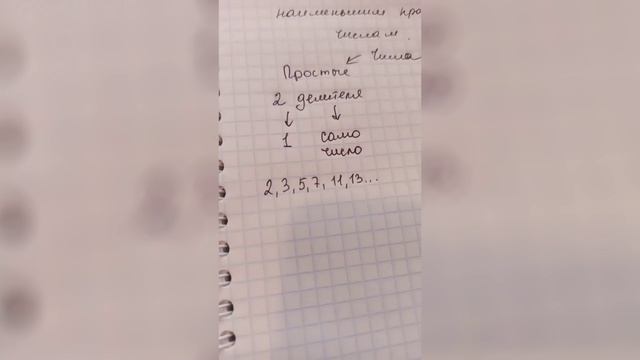 наименьшим про
числам.
числа
Простые
2 делителя
1 само
число
2, 3, 5, 7, 11, 13...